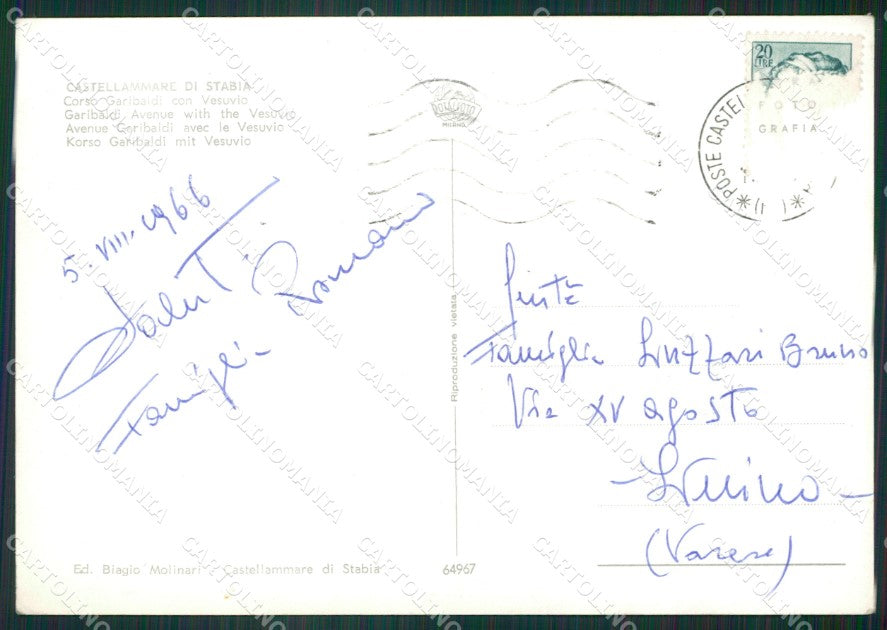 CASTELLAMMARE DI STABIA
Corso Garibaldi con Vesuvio
Garibaldi Avenue with the Vesuvio
Avenue Garibaldi avec le Vesuvio
Korso Garibaldi mit Vesuvio
20
LIRE
FOTO
GRAFIA
POSTE CASTEL
5.VIII.1966
Saluti
Famiglia Romano
Riproduzione vietata
Famiglia Bruno
Via XV Agosto
- Luino -
(Varese)
Ed. Biagio Molinari - Castellammare di Stabia
64967
CARTOLINOMANIA